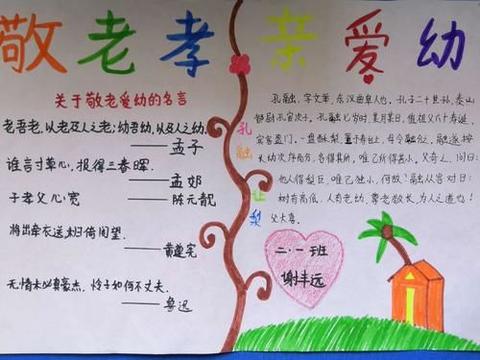 敬老孝亲爱幼
关于敬老爱幼的名言
老吾老,以老及人之老;幼吾幼,以及人之幼。
——孟子
谁言寸草心,报得三春晖。
——孟郊
子孝父心宽
——陈元靓
将出牵衣送,未归倚闾望。
——黄遵宪
无情未必真豪杰,怜子如何不丈夫。
——鲁迅
孔融让梨
孔融,字文举,东汉曲阜人也。孔子二十世孙,泰山
都尉孔宙次子。孔融七岁时,某月某日,值祖父六十寿诞,
宾客盈门。一盘酥梨,置于寿台上,母令融分。融遂按
长幼次序而分,各得其所,唯己所得甚小。父奇之,问曰:
他人得梨巨,唯己独小,何故?融从容对曰:
树有高低,人有老幼,尊老敬长,为人之道也!
父大喜。
二.一班
谢丰远